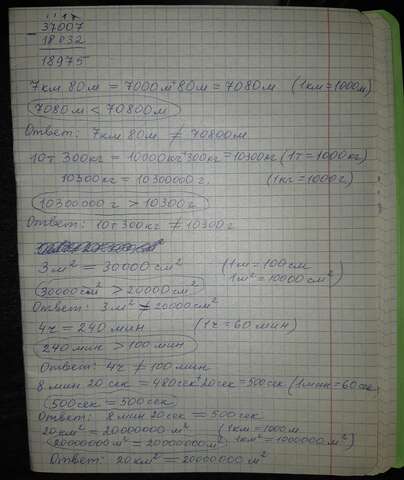 37007
- 18032
18975
7км 80м = 7000м+80м = 7080м (1км = 1000м)
7080м < 70800м
Ответ: 7км 80м ≠ 70800м
10т 300кг = 10000кг+300кг = 10300кг (1т = 1000кг)
10300кг = 10300000г. (1кг = 1000г)
10300000г > 10300г
Ответ: 10т 300кг ≠ 10300г
3м² = 30000см² (1м = 100см
1м² = 10000см²)
30000см² > 20000см²
Ответ: 3м² ≠ 20000см²
4ч = 240мин (1ч = 60мин)
240мин > 100мин
Ответ: 4ч ≠ 100мин
8мин 20сек = 480сек+20сек = 500сек (1мин = 60сек
500сек = 500сек
Ответ: 8мин 20сек = 500сек
20км² = 20000000м² (1км = 1000м
20000000м² = 20000000м² 1км² = 1000000м²)
Ответ: 20км² = 20000000м²